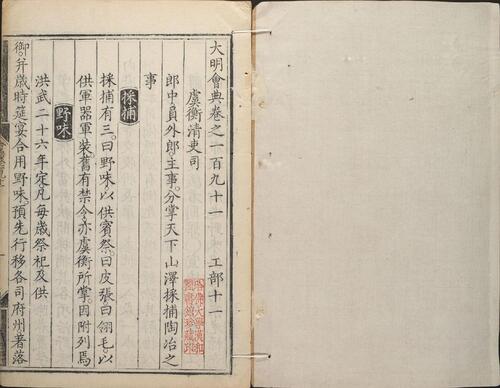 大明會典卷之一百九十一 工部十一
虞衡清吏司
郎中員外郎主事。分掌天下山澤採捕陶冶之
事
採捕
採捕有三。曰野味。以供賓祭。曰皮張。曰翎毛。以
供軍器軍裝。舊有禁令。亦虞衡所掌。因附列焉
野味
洪武二十六年定。凡每歲祭祀及供
御。幷歲時筵宴。合用野味。預先行移各司府州。著落